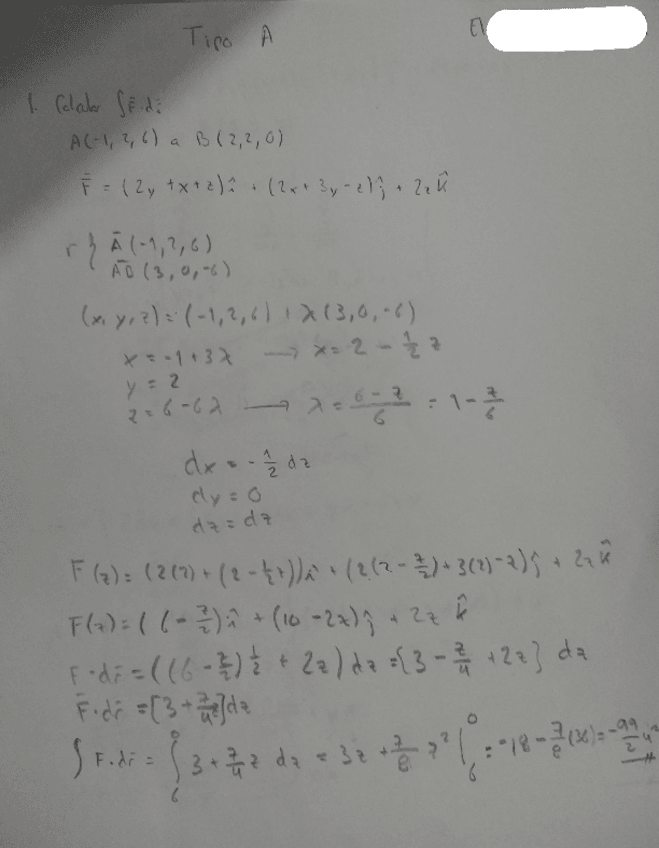 Tipo A
1. Calcular ∫F̄·dr̄
A(-1, 2, 6) a B(2, 2, 0)
F̄ = (2y + x + z)î + (2x + 3y - z)ĵ + 2z k̂
r { Ā(-1, 2, 6)
AB̄ (3, 0, -6)
(x, y, z) = (-1, 2, 6) + λ(3, 0, -6)
x = -1 + 3λ → x = 2 - 1/2 z
y = 2
z = 6 - 6λ → λ = (6 - z)/6 = 1 - z/6
dx = - 1/2 dz
dy = 0
dz = dz
F(z) = (2(2) + (2 - 1/2 z))î + (2(2 - z/2) + 3(2) - z)ĵ + 2z k̂
F(z) = (6 - z/2)î + (10 - 2z)ĵ + 2z k̂
F·dr̄ = ((6 - z/2) 1/2 + 2z) dz = {3 - z/4 + 2z} dz
F̄·dr̄ = [3 + 7/4 z] dz
∫ F·dr̄ = ∫₆⁰ 3 + 7/4 z dz = 3z + 7/8 z² |₆⁰ = -18 - 7/8 (36) = - 99/2 u²